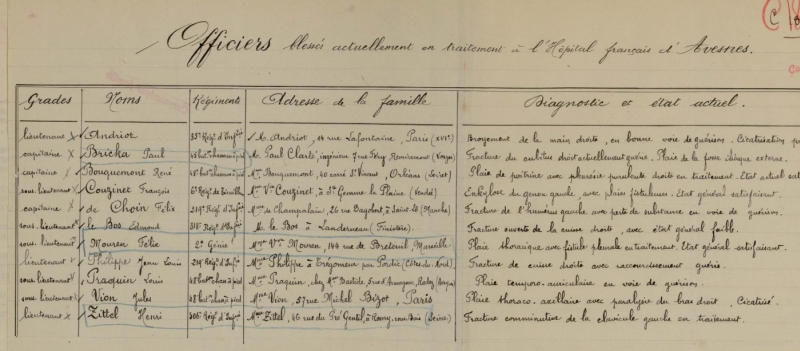 C
Officiers blessés actuellement en traitement à l'Hôpital français d'Avesnes.
Grades Noms Régiments Adresse de la famille Diagnostic et état actuel.
lieutenant Andriot 35e Régt d'Inf M. Andriot, rue Lafontaine, Paris (XVIe) Broyement de la main droite, en bonne voie de guérison. Cicatrisation
capitaine Bricka Paul M. Paul Clarté, ingénieur rue Remiremont (Vosges) Fracture du cubitus droit actuellement guérie. Plaie de la fosse iliaque externe.
capitaine Bouquemont René Mme Bouquemont, 40 Vincent, Orléans (Loiret) Plaie de poitrine avec pleurésie purulente droite en traitement. Etat actuel
sous-lieutenant Couzinet François Mme Vve Couzinet, à Ste Gemme la Plaine (Vendée) Enkylose du genou gauche, avec plaies fistuleuses. Etat général satisfaisant.
capitaine de Choin Félix Régt d'Inf Mme de Champalain, 26 rue à Saint-Lô (Manche) Fracture de l'humérus gauche avec perte de substance en voie de guérison.
sous-lieutenant le Bos Edmond Régt d'Inf M. le Bos à Landerneau (Finistère). Fracture ouverte de la cuisse droite, avec état général faible.
sous-lieutenant Mouren Félix 2e Génie Mme Vve Mouren, 144 rue de Breteuil, Marseille Plaie thoracique avec fistule pleurale en traitement. Etat général satisfaisant.
lieutenant Philippe Jean Louis Régt d'Inf Mme Philippe à Trégomeur par Pordic (Côtes-du-Nord) Fracture de cuisse droite avec raccourcissement guérie.
sous-lieutenant Praquin Louis Mme Praquin, chez Mme Bastide, Rodez Plaie temporo-auriculaire en voie de guérison.
sous-lieutenant Vion Jules Mme Vion, 37 rue Michel Bizot, Paris Plaie thoraco-axillaire avec paralysie du bras droit. Cicatrisé.
lieutenant Zittel Henri Régt d'Inf Mme Zittel, 46 rue du Pré Gentil, à Rosny-sous-Bois (Seine) Fracture comminutive de la clavicule gauche en traitement.